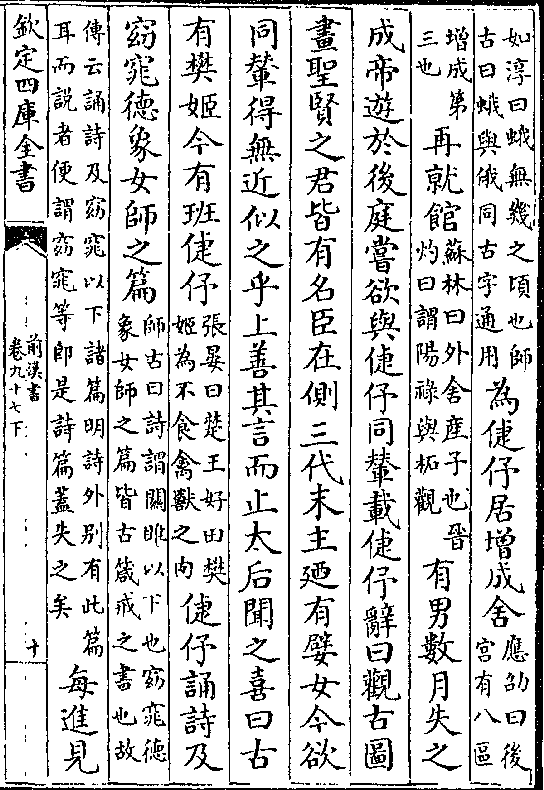 如淳曰蛾無幾之頃也師古曰蛾與俄同古字通用為倢伃居增成舍應劭曰後宮有八區
增成第三也再就館蘇林曰外舍產子也晉灼曰謂陽祿與柘觀有男數月失之
成帝遊於後庭嘗欲與倢伃同輦載倢伃辭曰觀古圖
畫聖賢之君皆有名臣在側三代末主廼有嬖女今欲
同輦得無近似之乎上善其言而止太后聞之喜曰古
有樊姬今有班倢伃張晏曰楚王好田樊姬為不食禽獸之肉倢伃誦詩及
窈窕德象女師之篇師古曰詩謂關雎以下也窈窕德象女師之篇皆古箴戒之書也故
傳云誦詩及窈窕以下諸篇明詩外别有此篇耳而説者便謂窈窕等即是詩篇蓋失之矣每進見
欽定四庫全書
前漢書
卷九十七下
十